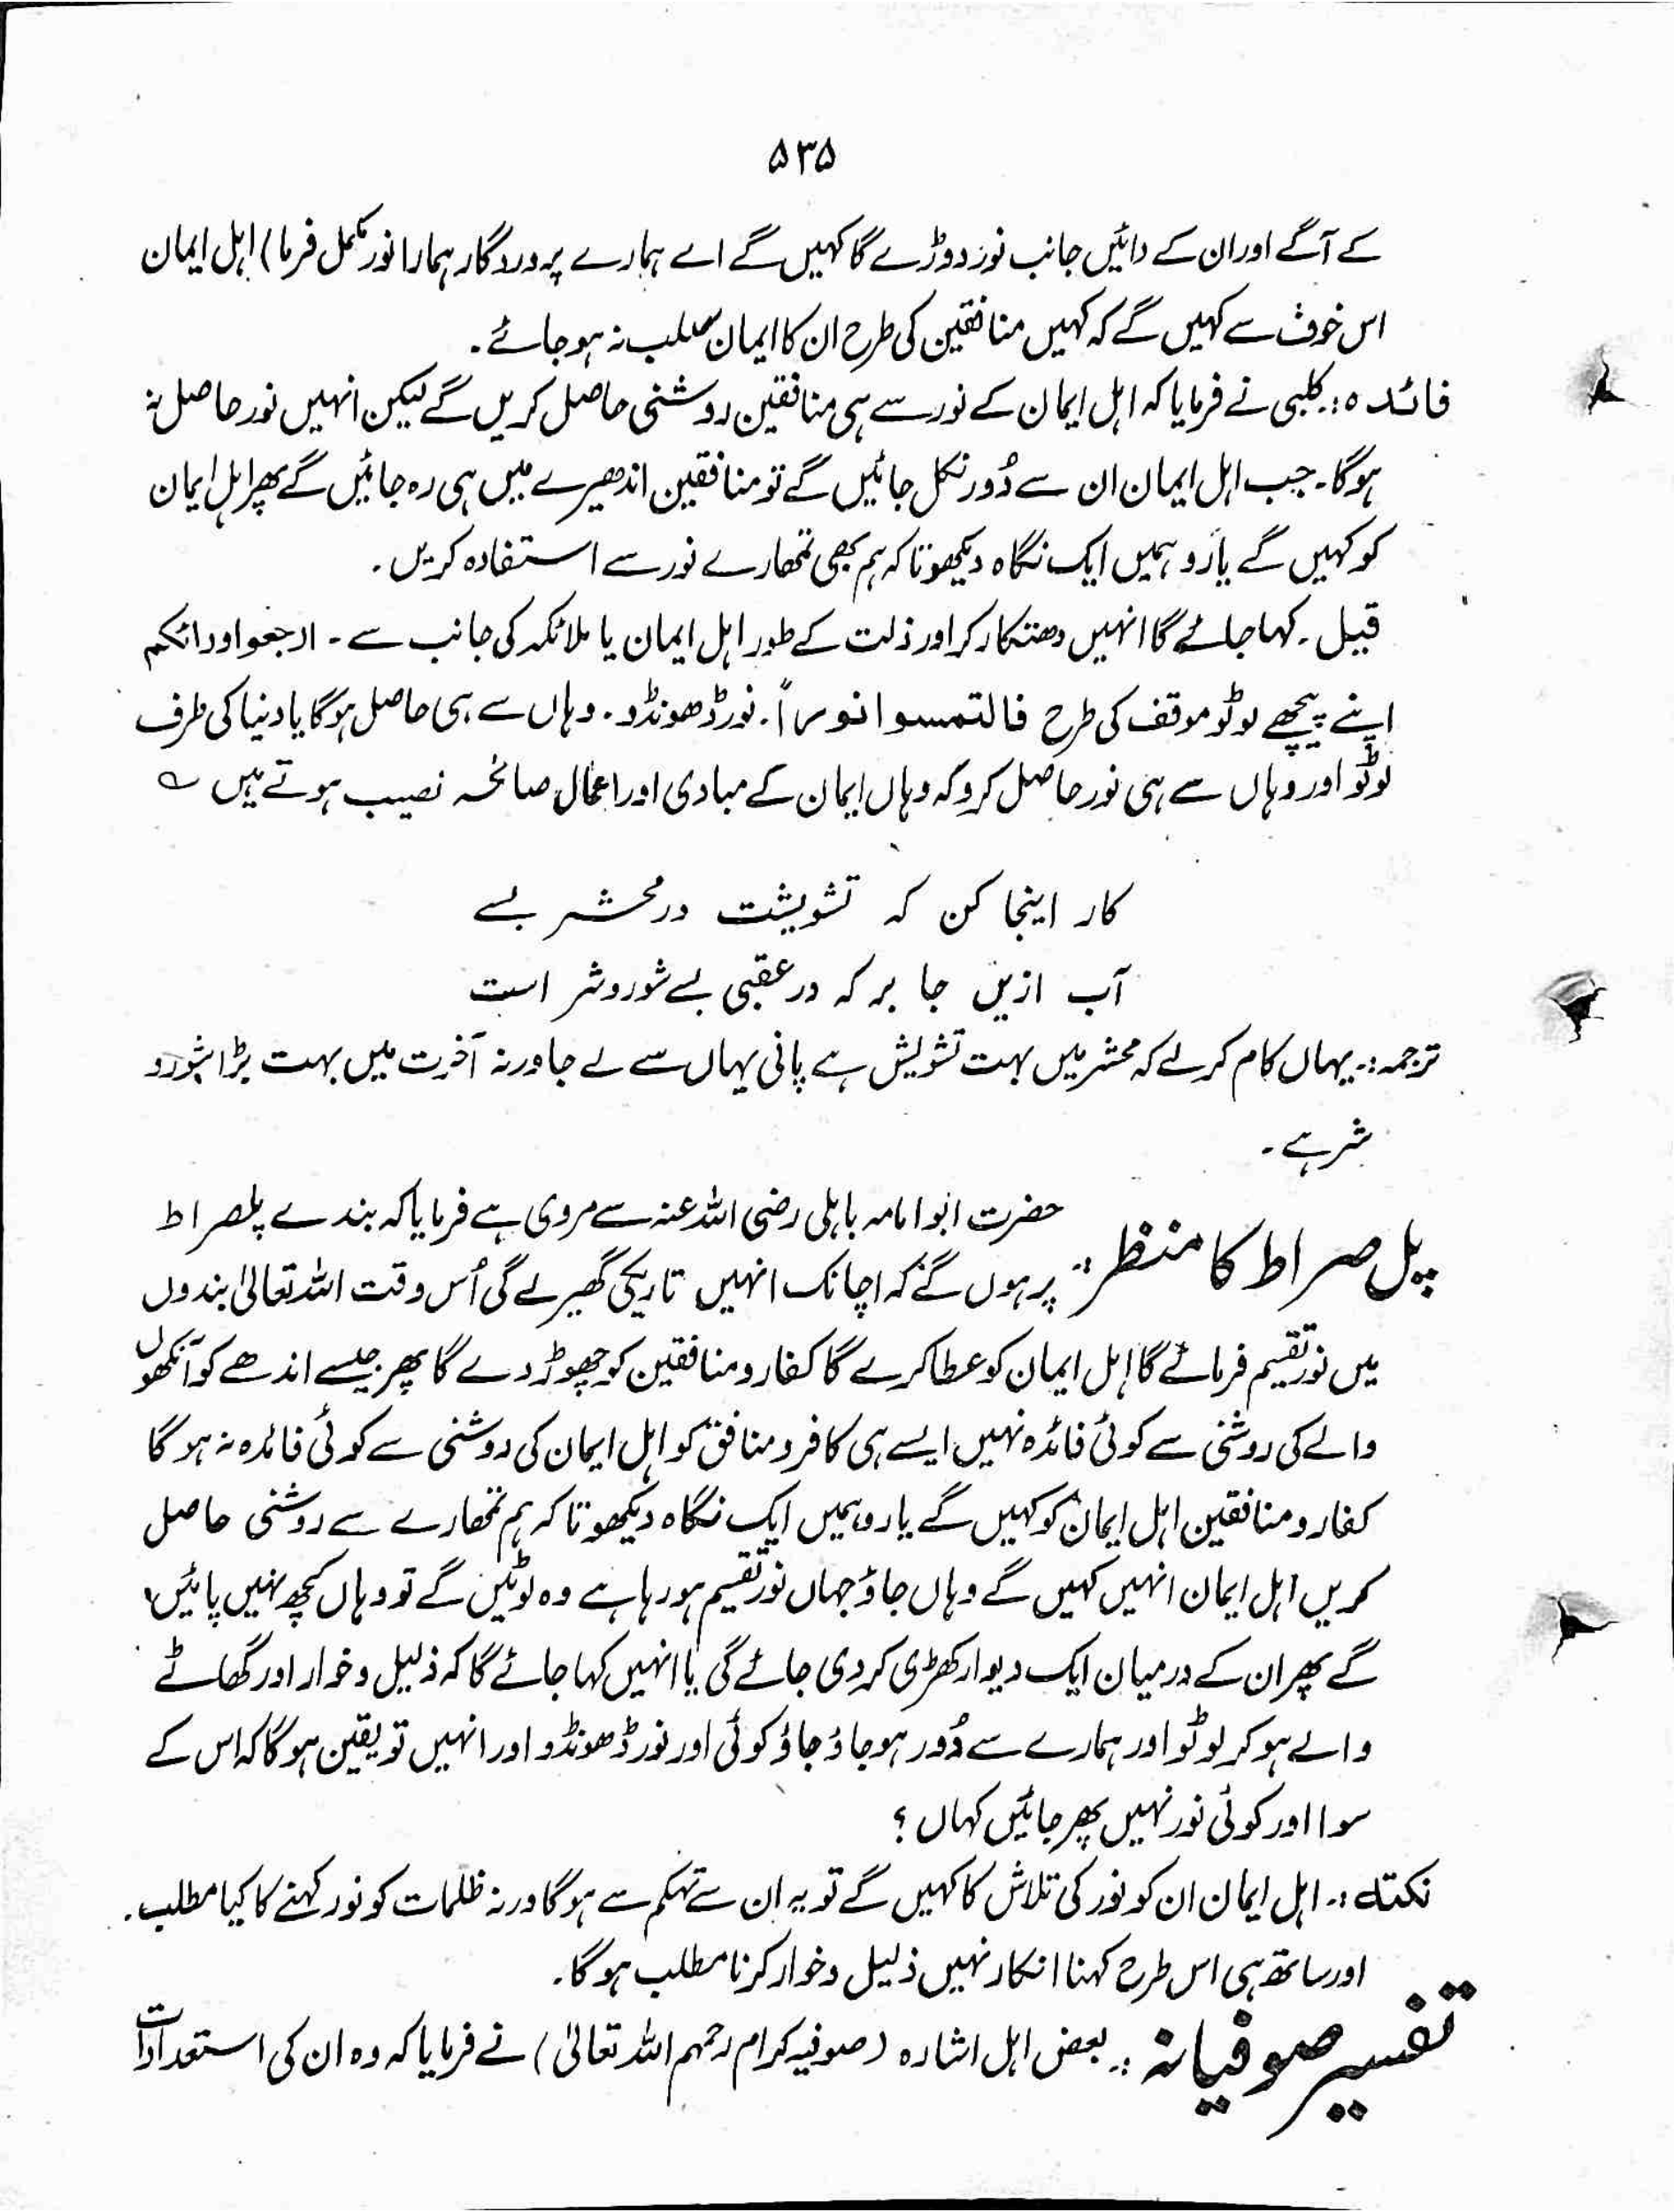 ۵۳۵
کے آگے اور ان کے دائیں جانب نور دوڑے گا کہیں گے اے ہمارے پروردگار ہمارا نور مکمل فرما) اہل ایمان
اس خوف سے کہیں گے کہ کہیں منافقین کی طرح ان کا ایمان سلب نہ ہو جائے۔
فائدہ:۔ کلبی نے فرمایا کہ اہل ایمان کے نور سے ہی منافقین روشنی حاصل کریں گے لیکن انہیں نور حاصل نہ
ہوگا۔ جب اہل ایمان ان سے دُور نکل جائیں گے تو منافقین اندھیرے میں ہی رہ جائیں گے پھر اہل ایمان
کو کہیں گے یارو ہمیں ایک نگاہ دیکھو تا کہ ہم بھی تمھارے نور سے استفادہ کریں۔
قیل۔ کہا جائے گا انہیں دھتکار کر اور ذلت کے طور اہل ایمان یا ملائکہ کی جانب سے۔ ارجعوا ورائکم
اپنے پیچھے لوٹو موقف کی طرح فالتمسوا نوراً۔ نور ڈھونڈو۔ وہاں سے ہی حاصل ہوگا یا دنیا کی طرف
لوٹو اور وہاں سے ہی نور حاصل کرو کہ وہاں ایمان کے مبادی اور اعمال صالحہ نصیب ہوتے ہیں ؎
کار اینجا کن کہ تشویشت در محشر بسے
آب ازیں جا بر کہ در عقبی بسے شور و شر است
ترجمہ:۔ یہاں کام کر لے کہ محشر میں بہت تشویش ہے پانی یہاں سے لے جا ورنہ آخرت میں بہت بڑا شور و
شر ہے۔
پل صراط کا منظر:۔ حضرت ابو امامہ باہلی رضی اللہ عنہ سے مروی ہے فرمایا کہ بندے پلصراط
پر ہوں گے کہ اچانک انہیں تاریکی گھیر لے گی اُس وقت اللہ تعالیٰ بندوں
میں نور تقسیم فرمائے گا اہل ایمان کو عطا کرے گا کفار و منافقین کو چھوڑ دے گا پھر جیسے اندھے کو آنکھوں
والے کی روشنی سے کوئی فائدہ نہیں ایسے ہی کافر و منافق کو اہل ایمان کی روشنی سے کوئی فائدہ نہ ہوگا
کفار و منافقین اہل ایمان کو کہیں گے یارو ہمیں ایک نگاہ دیکھو تا کہ ہم تمھارے سے روشنی حاصل
کریں اہل ایمان انہیں کہیں گے وہاں جاؤ جہاں نور تقسیم ہو رہا ہے وہ لوٹیں گے تو وہاں کچھ نہیں پائیں
گے پھر ان کے درمیان ایک دیوار کھڑی کر دی جائے گی یا انہیں کہا جائے گا کہ ذلیل و خوار اور گھاٹے
والے ہو کر لوٹو اور ہمارے سے دُور ہو جاؤ جاؤ کوئی اور نور ڈھونڈو اور انہیں تو یقین ہوگا کہ اس کے
سوا اور کوئی نور نہیں پھر جائیں کہاں ؟
نکتہ:۔ اہل ایمان ان کو نور کی تلاش کا کہیں گے تو یہ ان سے تہکم سے ہوگا ورنہ ظلمات کو نور کہنے کا کیا مطلب۔
اور ساتھ ہی اس طرح کہنا انکار نہیں ذلیل و خوار کرنا مطلب ہوگا۔
تفسیر صوفیانہ:۔ بعض اہل اشارہ (صوفیہ کرام رحمہم اللہ تعالیٰ) نے فرمایا کہ وہ ان کی استعدادات